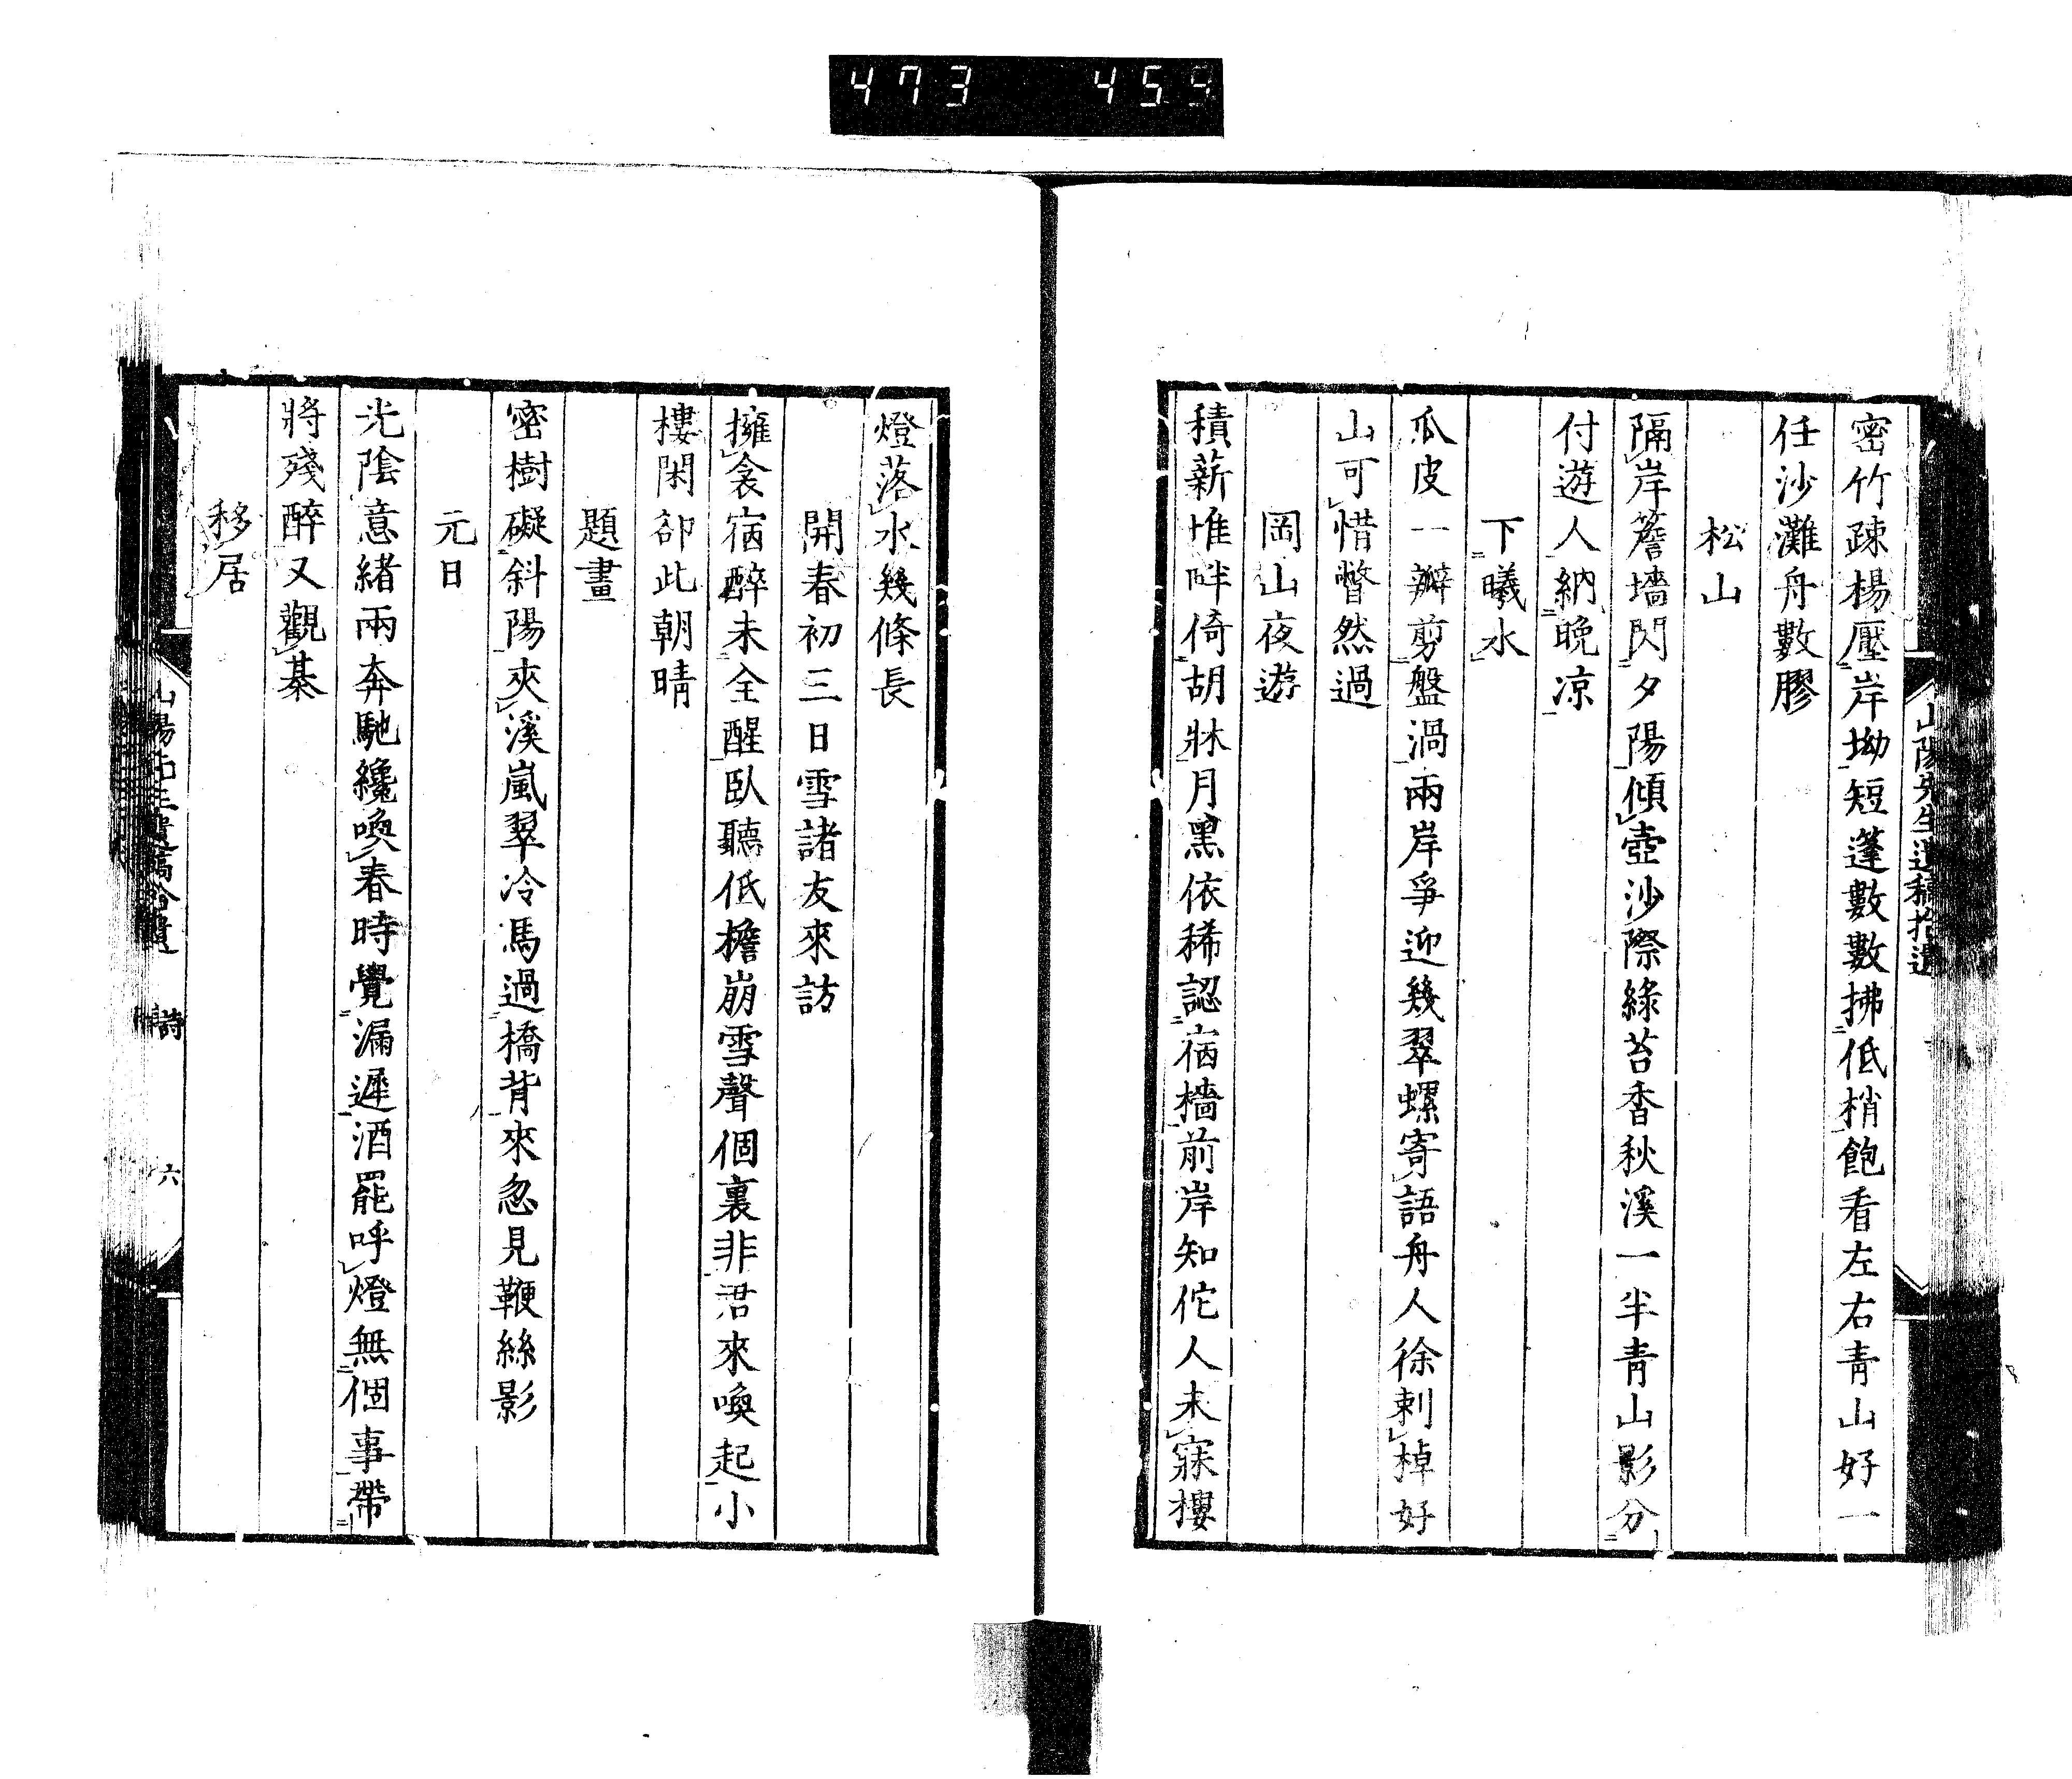 473 459
山陽先生遺稿拾遺
密竹疎楊壓岸坳短蓬數數拂低梢飽看左右青山好一
任沙灘舟數膠
松山
隔岸簷墻閃夕陽傾壺沙際綠苔香秋溪一半青山影分
付遊人納晚凉
下曦水
瓜皮一瓣剪盤渦兩岸爭迎幾翠螺寄語舟人徐刺棹好
山可惜瞥然過
岡山夜遊
積薪堆畔倚胡牀月黑依稀認宿檣前岸知佗人未寐樓
燈落水幾條長
開春初三日雪諸友來訪
擁衾宿醉未全醒臥聽低檐崩雪聲個裏非君來喚起小
樓閑卻此朝晴
題畫
密樹礙斜陽夾溪嵐翠冷馬過橋背來忽見鞭絲影
元日
光陰意緒兩奔馳纔喚春時覺漏遲酒罷呼燈無個事帶
將殘醉又觀棊
移居
山陽先生遺稿拾遺 詩 六